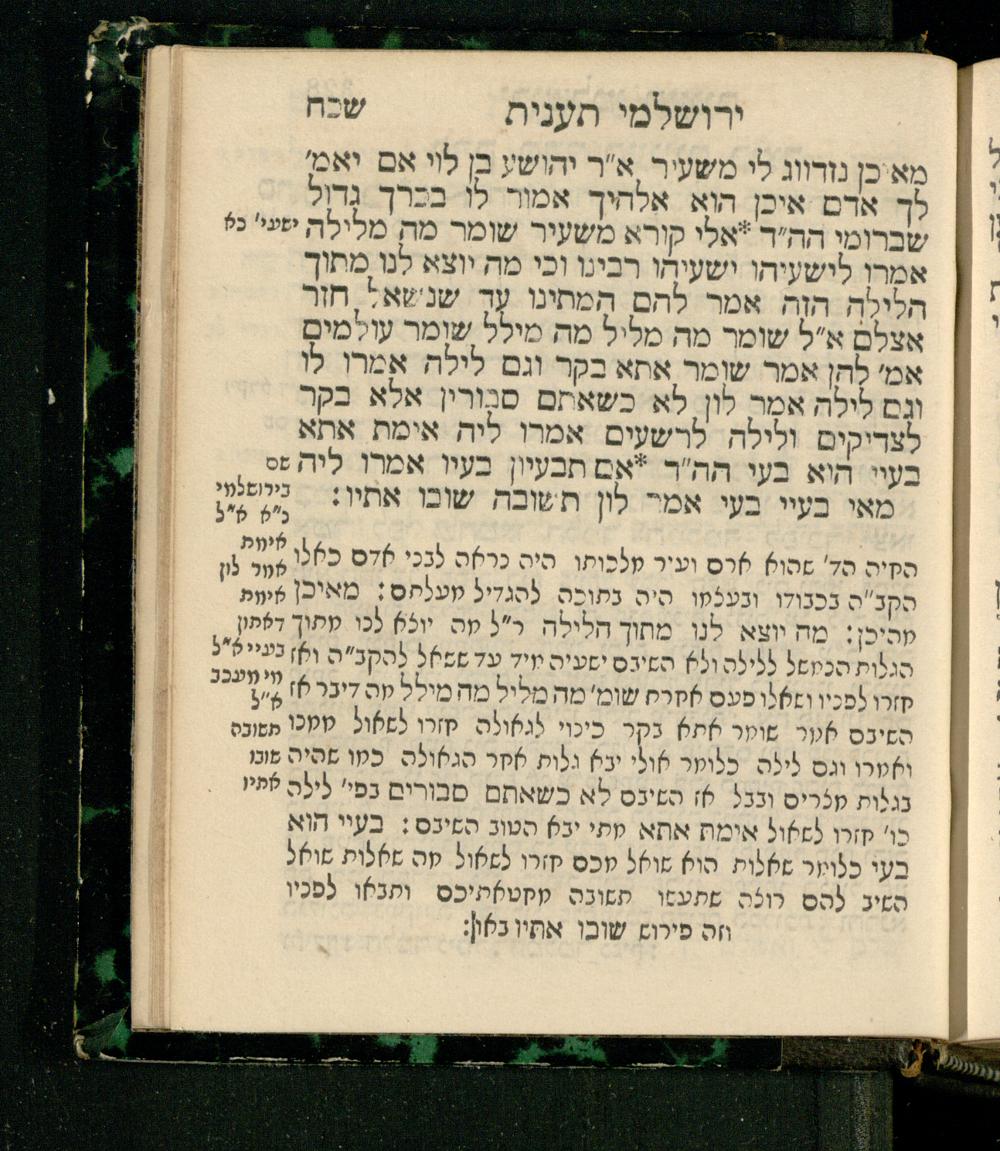 ירושלמי תענית שכח
מא כן נזדווג לי משעיר א״ר יהושע בן לוי אם יאמ׳
לך אדם איכן הוא אלהיך אמור לו בכרך גדול
שברומי הה״ד *אלי קורא משעיר שומר מה מלילה
אמרו לישעיהו ישעיהו רבינו וכי מה יוצא לנו מתוך
הלילה הזה אמר להם המתינו עד שנשאל חזר
אצלם א״ל שומר מה מליל מה מילל שומר עולמים
אמ׳ להן אמר שומר אתא בקר וגם לילה אמרו לו
וגם לילה אמר לון לא כשאתם סבורין אלא בקר
לצדיקים ולילה לרשעים אמרו ליה אימת אתא
בעיי הוא בעי הה״ד *אם תבעיון בעיו אמרו ליה
מאי בעיי בעי אמר לון תשובה שובו אתיו:
החיה הד׳ שהוא ארם ועיר מלכותו היה נראה לבני אדם כאלו
הקב״ה בכבודו ובעצמו היה בתוכה להגדיל מעלתם: מאיכן
מהיכן: מה יוצא לנו מתוך הלילה ר״ל מה יוצא לנו מתוך
הגלות הנמשל ללילה ולא השיבם ישעיה מיד עד ששאל להקב״ה ואז
חזרו לפניו ושאלו פעם אחרת שומ׳ מה מליל מה מילל מה דיבר אז
השיבם אמר שומר אתא בקר כינוי לגאולה חזרו לשאול ממנו
ואמרו וגם לילה כלומר אולי יבא גלות אחר הגאולה כמו שהיה
בגלות מצרים ובבל אז השיבם לא כשאתם סבורים בפי׳ לילה
כו׳ חזרו לשאול אימת אתא מתי יבא הטוב השיבם: בעיי הוא
בעי כלומר שאלות הוא שואל מכם חזרו לשאול מה שאלות שואל
השיב להם רוצה שתעשו תשובה מחטאתיכם ותבאו לפניו
וזה פירוש שובו אתיו באון:
ישעי׳ כא
שם
בירושלמי
כ״א א״ל
אימת
אמר לון
אימת
דאתון
בעיי א״ל
מי מעכב
א״ל
תשובה
שובו
אתיו